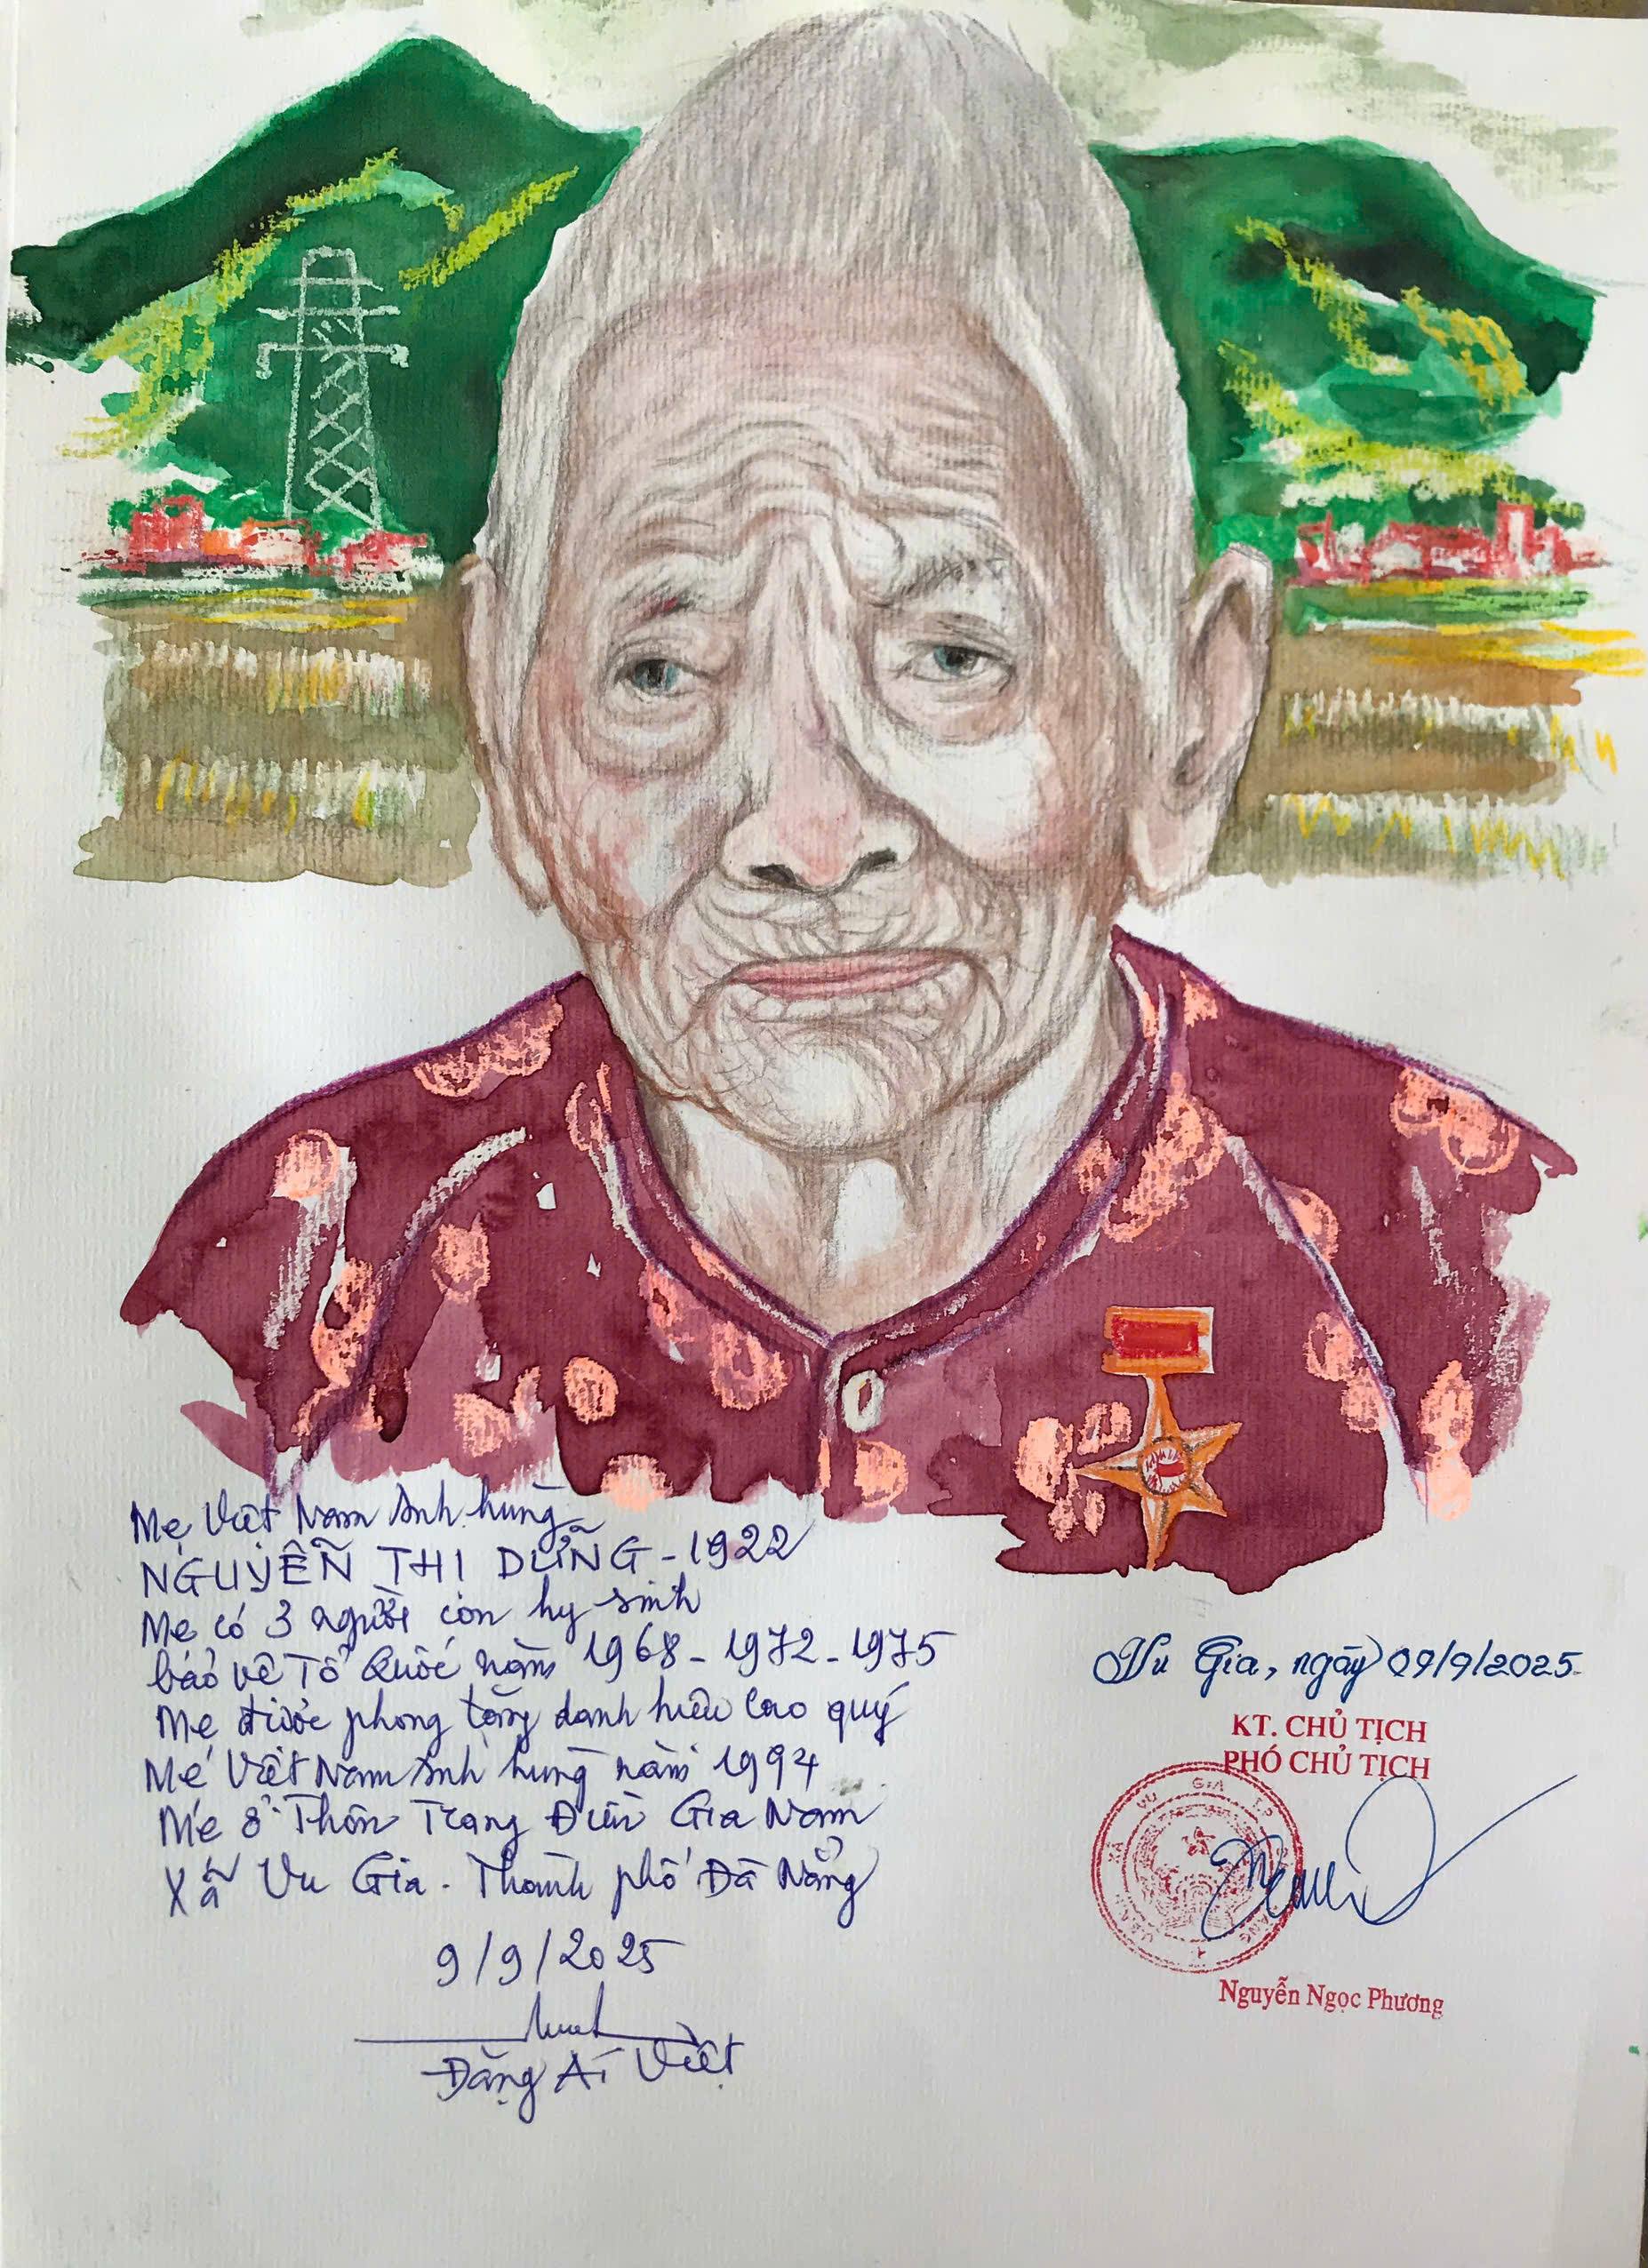 Mẹ Việt Nam Anh hùng
NGUYỄN THỊ DƯỠNG - 1922
Mẹ có 3 người con hy sinh
bảo vệ Tổ Quốc năm 1968 - 1972 - 1975
Mẹ được phong tặng danh hiệu cao quý
Mẹ Việt Nam Anh hùng năm 1994
Mẹ ở Thôn Trang Điền Gia Nam
Xã Vu Gia - Thành phố Đà Nẵng
9/9/2025
Đặng Ái Việt
Vu Gia, ngày 09/9/2025
KT. CHỦ TỊCH
PHÓ CHỦ TỊCH
VU GIA T.P
Nguyễn Ngọc Phương